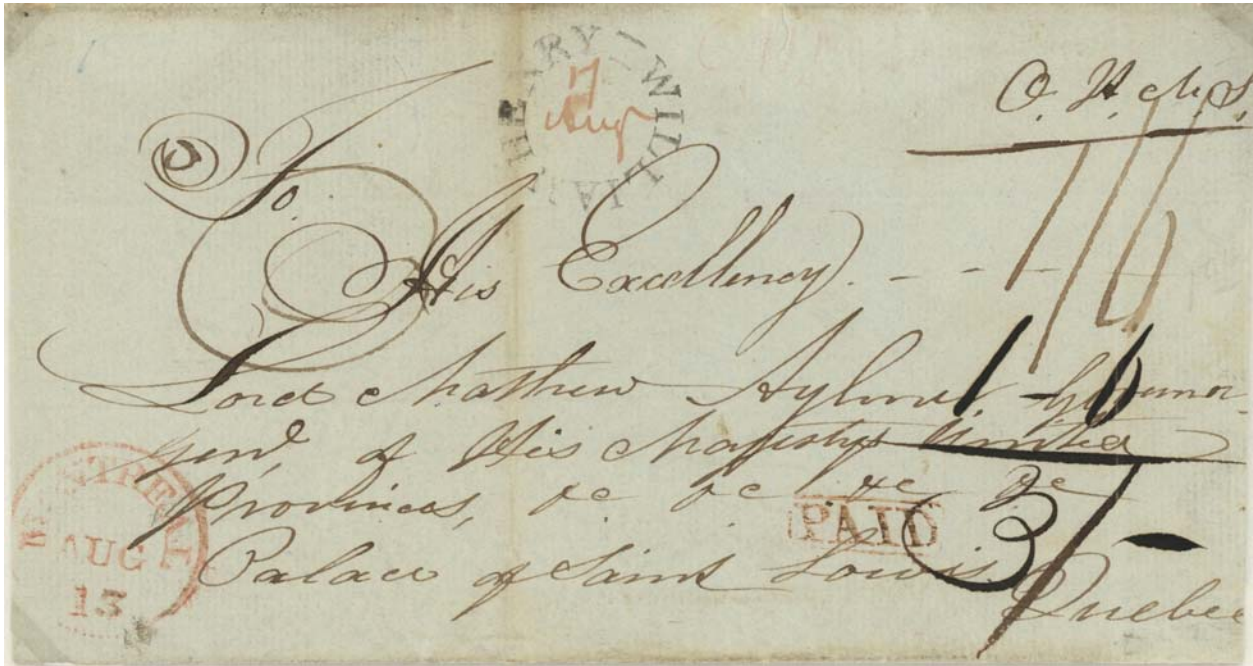 WILLIAM HENRY
17
Aug
O. H. M. S.
1/6
To.
His Excellency. - - -
Lord Mathew Aylmer, Governor
Genl. of His Majestys United
1-6
Provinces, &c &c &c &c
PAID
3/-
Palace of Saint Lowis,
Quebec
MONTREAL
AUG
13